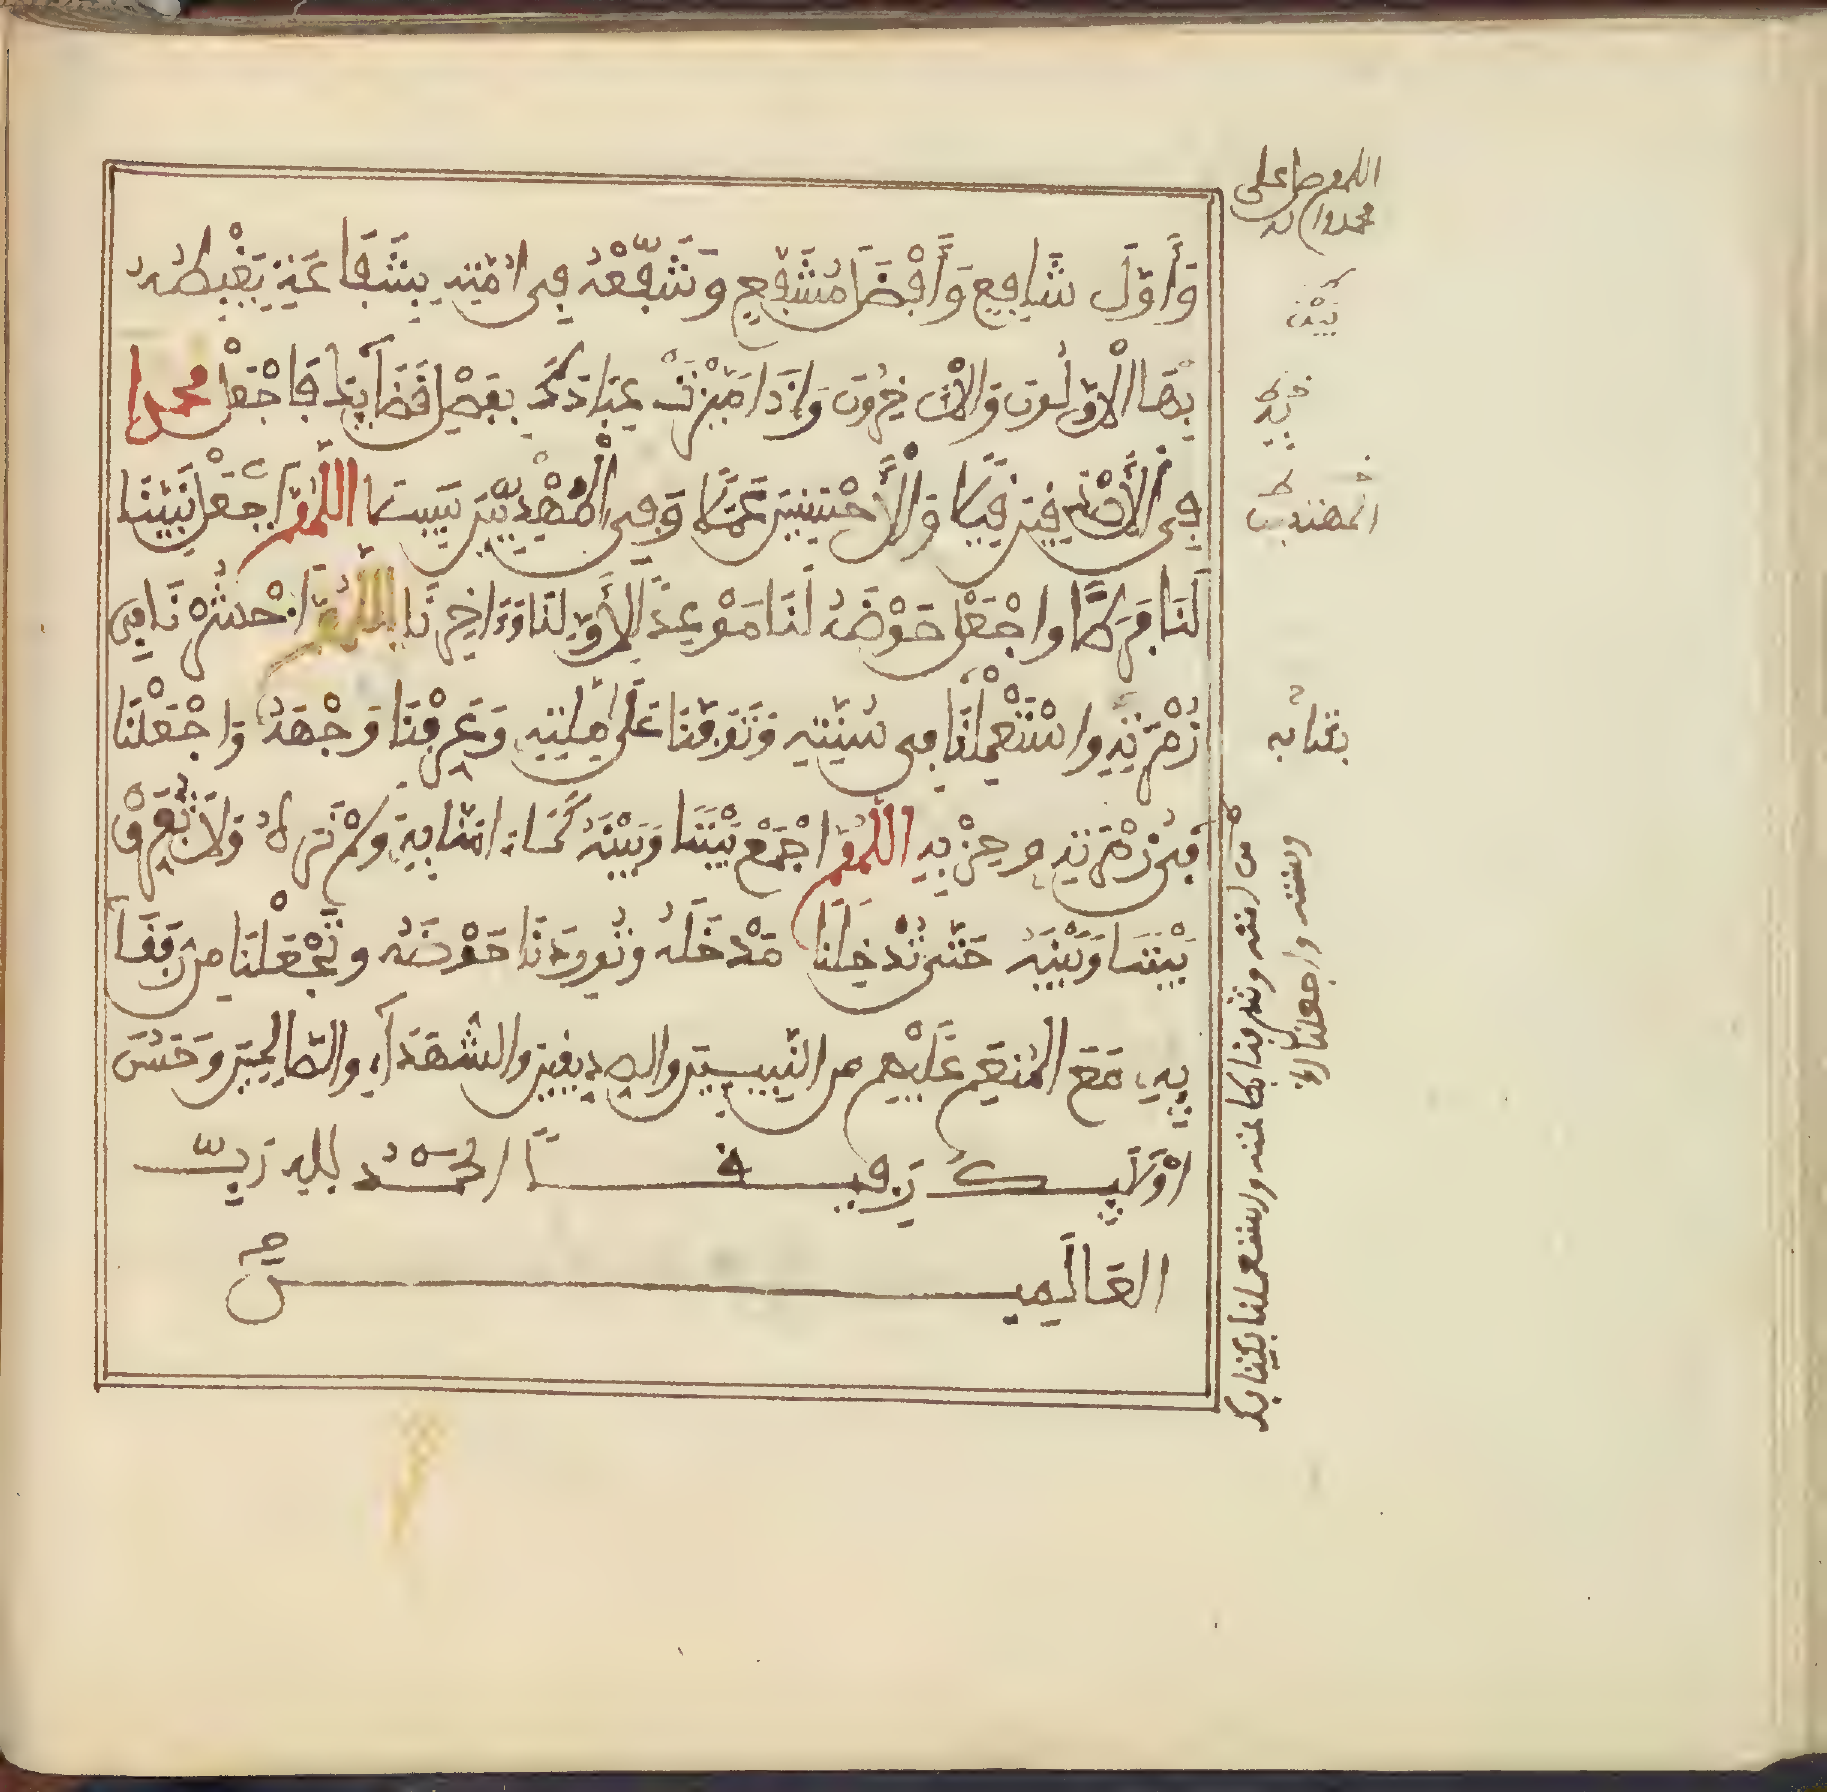 وَأَوَّلَ شَافِعٍ وَأَفْضَلَ مُشَفَّعٍ وَشَفِّعْهُ فِي أُمَّتِهِ بِشَفَاعَةٍ يَغْبِطُهُ
بِهَا الْأَوَّلُونَ وَالْآخِرُونَ وَإِذَا مَيَّزْتَ عِبَادَكَ بِفَصْلِ قَضَائِكَ فَاجْعَلْ مُحَمَّدًا
فِي الْأَصْدَقِينَ قِيلًا وَالْأَحْسَنِينَ عَمَلًا وَفِي الْمَهْدِيِّينَ سَبِيلًا اللَّهُمَّ اجْعَلْ نَبِيَّنَا
لَنَا فَرَطًا وَاجْعَلْ حَوْضَهُ لَنَا مَوْعِدًا لِأَوَّلِنَا وَءَاخِرِنَا اللَّهُمَّ احْشُرْنَا فِي
زُمْرَتِهِ وَاسْتَعْمِلْنَا فِي سُنَّتِهِ وَتَوَفَّنَا عَلَى مِلَّتِهِ وَعَرِّفْنَا وَجْهَهُ وَاجْعَلْنَا
فِي زُمْرَتِهِ وَحِزْبِهِ اللَّهُمَّ اجْمَعْ بَيْنَنَا وَبَيْنَهُ كَمَا ءَامَنَّا بِهِ وَلَمْ نَرَهُ وَلَا تُفَرِّقْ
بَيْنَنَا وَبَيْنَهُ حَتَّى تُدْخِلَنَا مَدْخَلَهُ وَتُورِدَنَا حَوْضَهُ وَتَجْعَلَنَا مِنْ رُفَقَا
ئِهِ مَعَ الْمُنْعَمِ عَلَيْهِمْ مِنَ النَّبِيِّينَ وَالصِّدِّيقِينَ وَالشُّهَدَاءِ وَالصَّالِحِينَ وَحَسُنَ
أُولَئِكَ رَفِيقًا الْحَمْدُ لِلَّهِ رَبِّ
الْعَالَمِينَ
اللهم صل على
محمد وال
المهتدين